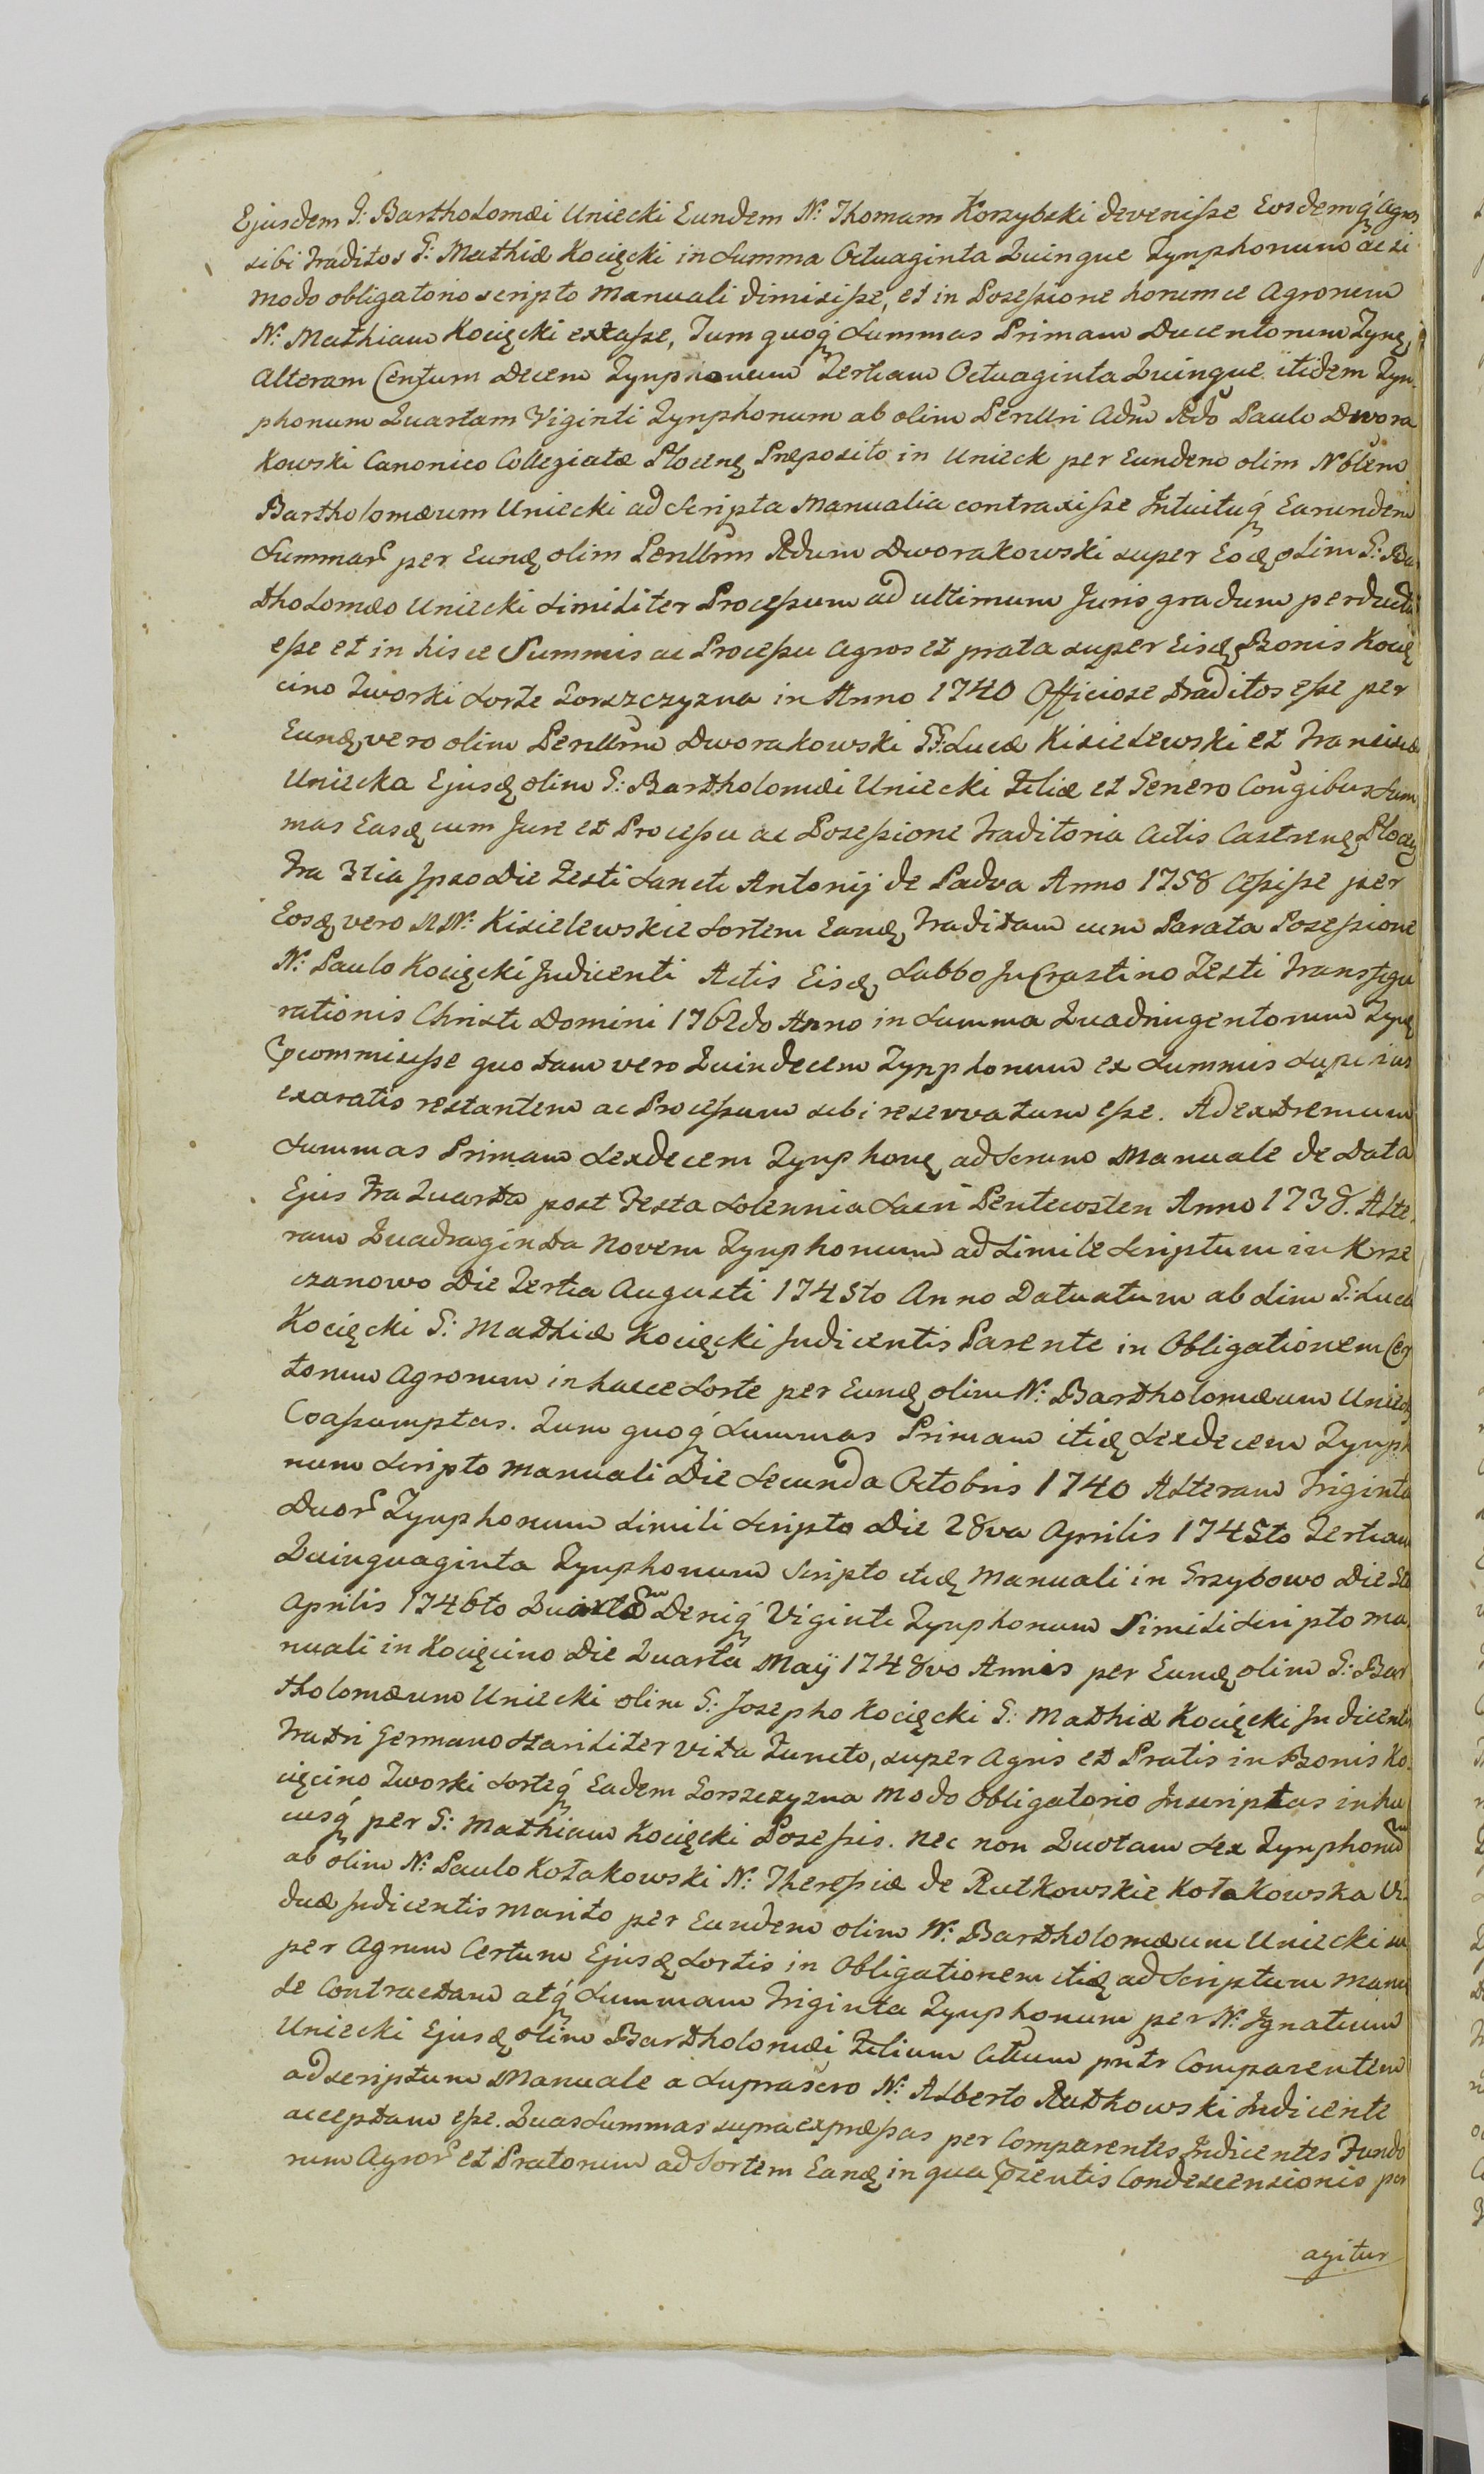 Ejusdem G: Bartholomæi Uniecki Eundem N: Thomam Korzybski devenisse Eosdemq́ Agros
sibi traditos G: Mathiæ Kocięcki in Summa Octuaginta Quinque Tynphonum ac si
modo obligatorio scripto Manuali dimisisse, et in Posessione horumce Agrorum
N: Mathiam Kocięcki extasse, Tum quoq́ Summas Primam Ducentorum Tynę
Alteram Centum Decem Tynphonum Tertiam Octuaginta Quinque itidem Tyn
phonum Quartam Viginti Tynphonum ab olim Perllri Adm Rdo Paulo Dwora
kowski Canonico Collegiatæ Plocenę Præposito in Unieck per Eundem olim Noblem
Bartholomæum Uniecki ad Scripta Manualia contraxisse Intuituq́ Earundem
Summar per Eundę olim Perllrm Rdum Dworakowski super Eodę olim G: Bar
tholomæo Uniecki Similiter Processum ad ultimum Juris gradum perductum
esse et in hisce Summis ac Processu Agros et prata super Eisdę Bonis Kocię
cino Tworski Sorte Gorszczyzna in Anno 1740 Officiose traditos esse per
Eundę vero olim Perllrm Dworakowski GG: Lucæ Kisielewski et Franciscæ
Uniecka Ejusdę olim G: Bartholomæi Uniecki Filiæ et Genero Conjugibus Sum
mas Easdę cum Jure et Processu ac Posessione Traditoria Actis Castrenę Plocę
Fra 3tia Ipso Die Festi Sancti Antonij de Padva Anno 1758 Cessisse per
Eosdę vero NN: Kisielewskie Sortem Eandę Traditam cum Parata Posessione
N: Paulo Kocięcki Indicenti Actis Eisdę Sabbo In Crastino Festi Transfigu
rationis Christi Domini 1762do Anno in Summa Quadringentorum Tynę
Ꝓcommisisse quotam vero Quindecem Tynphonum ex Summis Superius
exaratis restantem ac Processum sibi reservatum esse. Ad extremum
Summas Primam Sexdecem Tynphonę ad Scrum Manuale de Data
Ejus Fra Quarta post Festa Solennia Sacri Pentecosten Anno 1738. Alte
ram Quadraginta Novem Tynphonum ad Simile Scriptum in Krze
czanowo Die Tertia Augusti 1745to Anno Datuatum ab olim G: Luca
Kocięcki G: Mathiæ Kocięcki Indicentis Parente in Obligationem Cer
torum Agrorum in hacce Sorte per Eundę olim N: Bartholomæum Uniecki
Coassumptas. Tum quoq́ Summas Primam itidę Sexdecem Tynpho
num Scripto Manuali Die Secunda Octobris 1740 Alteram Triginta
Duor Tynphonum Simili Scripto Die 28va Aprilis 1745to Tertiam
Quinquaginta Tynphonum Scripto itidę Manuali in Grzybowo Die 5ta
Aprilis 1746to Quartam Deniq́ Viginti Tynphonum Simili Scripto Ma
nuali in Kocięcino Die Quarta Maÿ 1748vo Annis per Eundę olim G: Bar
tholomæum Uniecki olim G: Josepho Kocięcki G: Mathiæ Kocięcki Indicentis
Fratri Germano Steriliter vita functo, super Agris et Pratis in Bonis Ko
cięcino Tworski Sorteq́ Eadem Gorszczyzna Modo Obligatorio Inscriptas in hu
cusq́ per G: Mathiam Kocięcki Posessis. Nec non Quotam Sex Tynphonum
ab olim N: Paulo Kołakowski N: Theressiæ de Rutkowskie Kołakowska Vi
duæ Indicentis Marito per Eundem olim N: Bartholomæum Uniecki su
per Agrum Certum Ejusdę Sortis in Obligationem itidę ad Scriptum Manu
le Contractam atq́ Summam Triginta Tynphonum per N: Ignatium
Uniecki Ejusdę olim Bartholomæi Filium Actum pntr Comparentem
ad scriptum Manuale a Suprascro N: Alberto Rutkowski Indicente
acceptam esse. Quas Summas supra expressas per Comparentes Indicentes Fundo
rum Agror et Pratorum ad Sortem Eandę in qua Ꝓsentis Condescensionis per
agitur